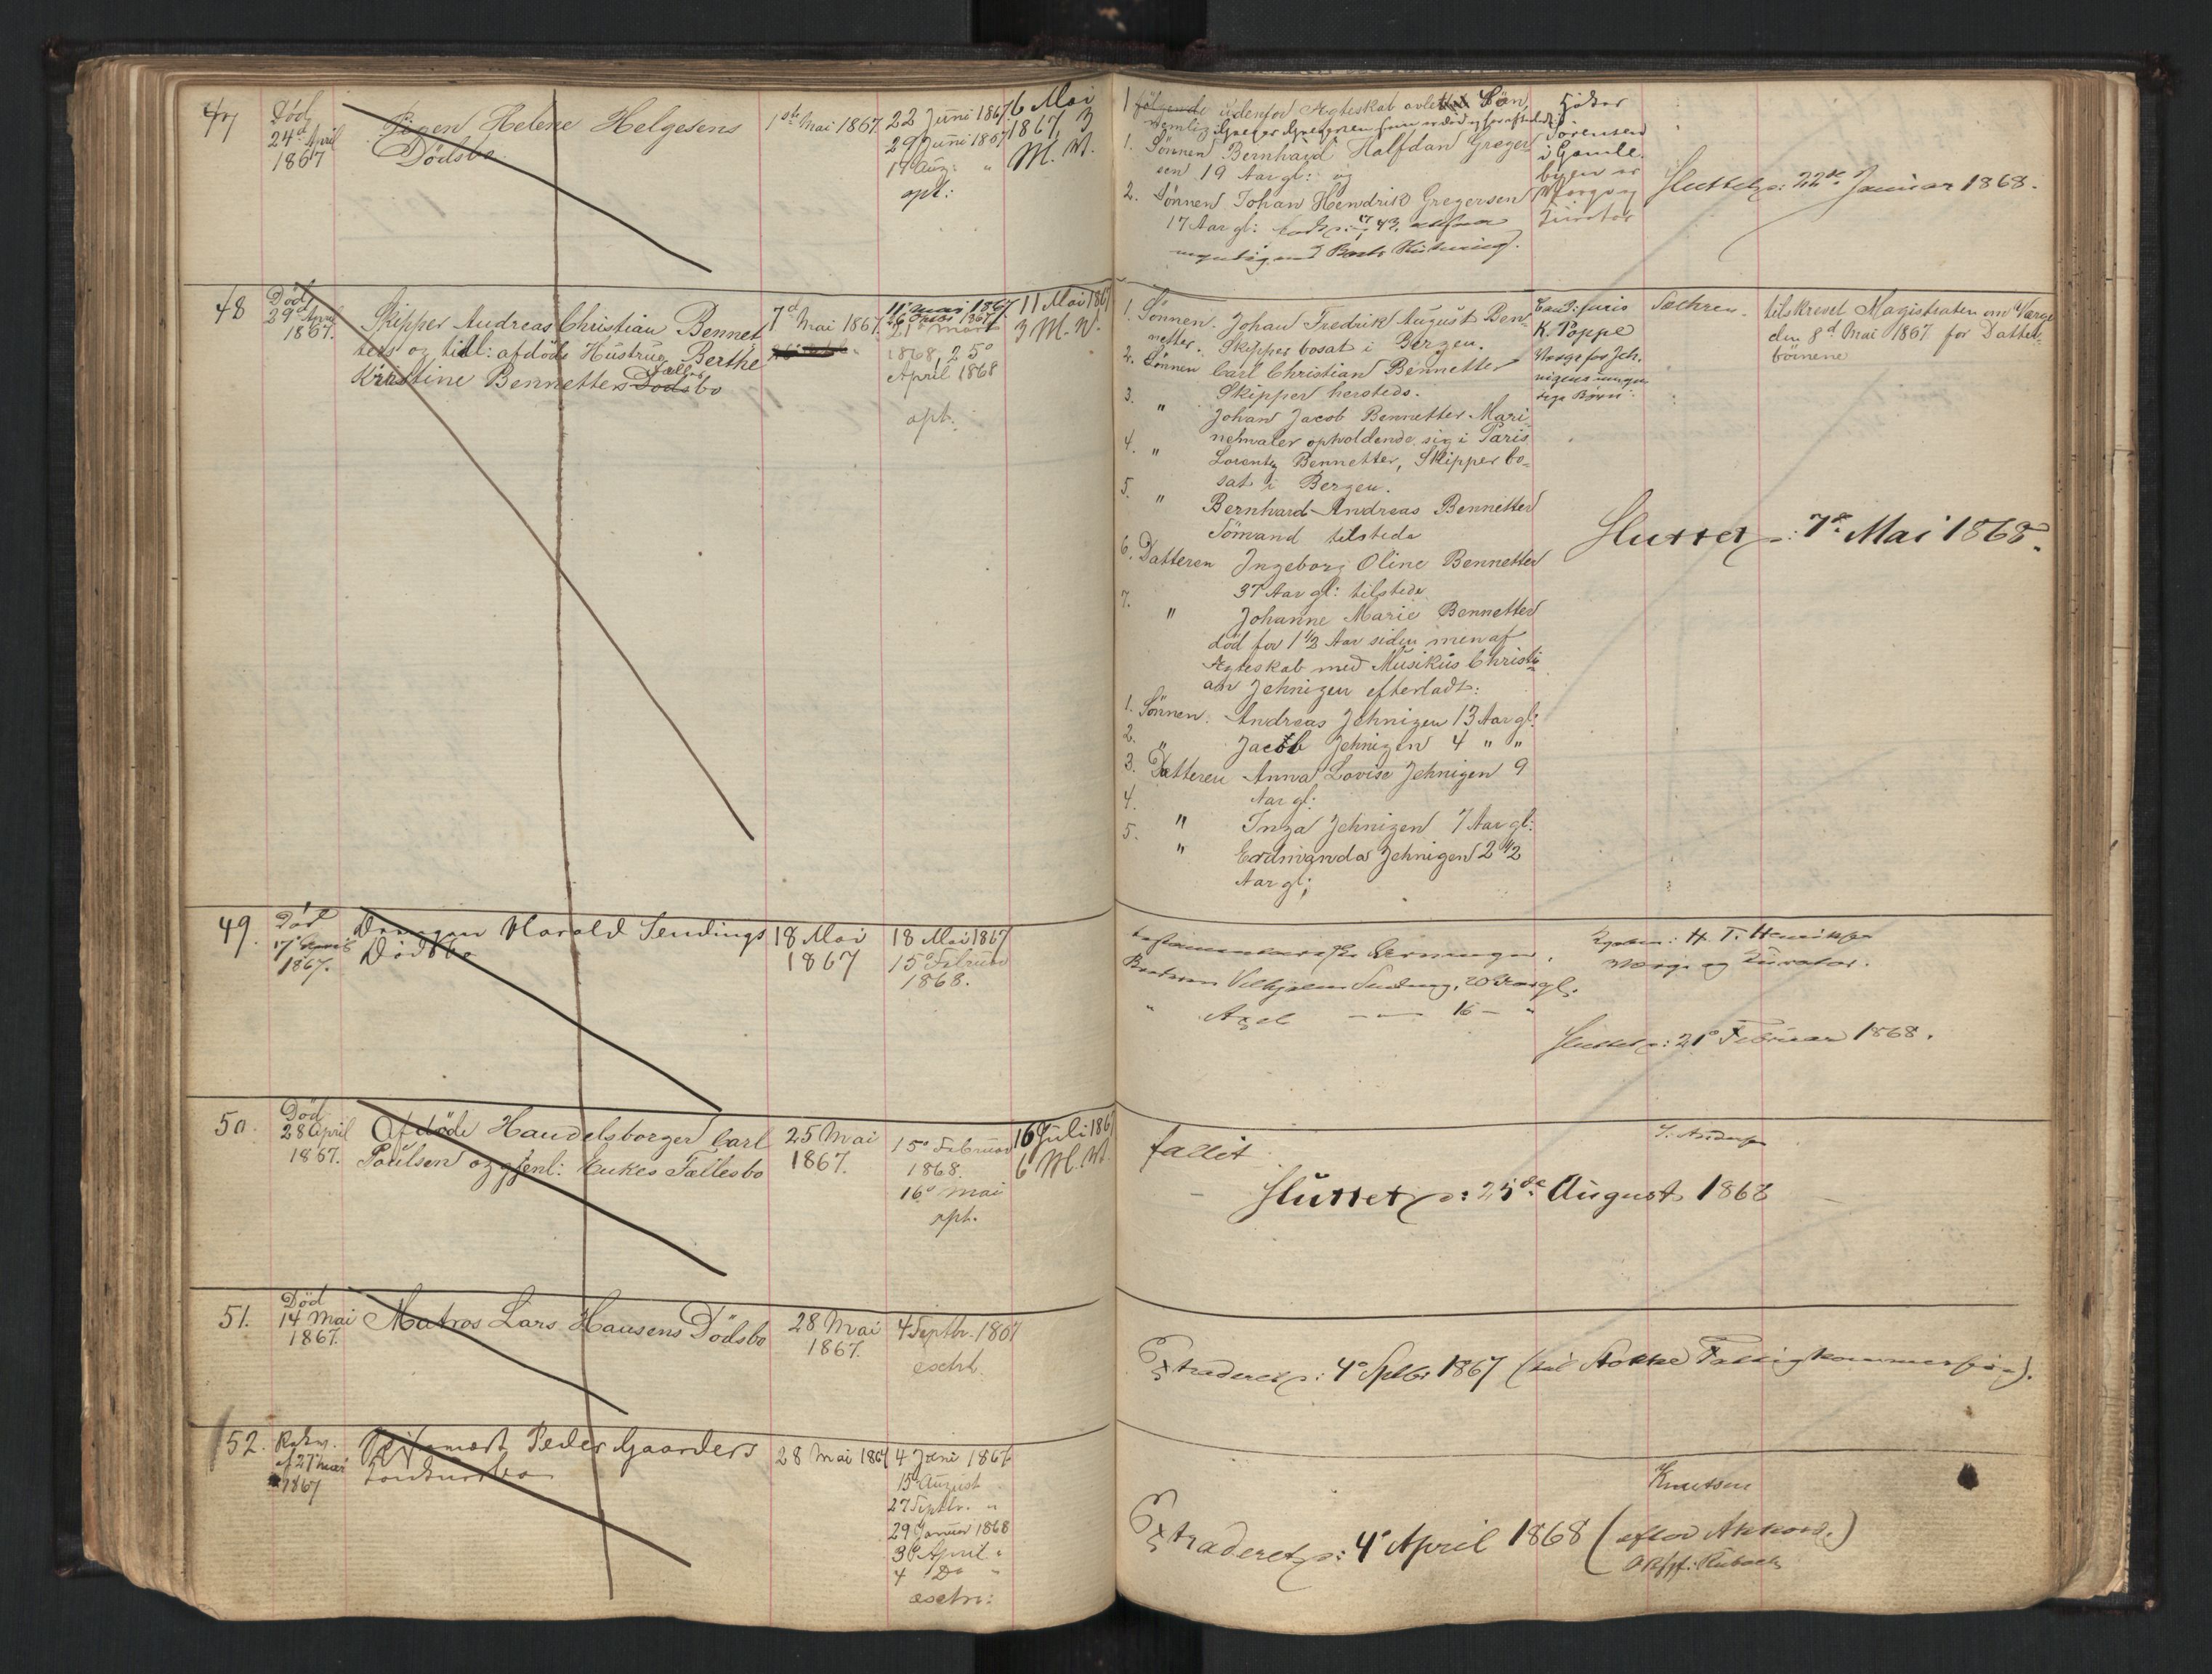 47
Död
24d April
1867
Pigen Helene Helgesens
Dödsbo
1ste Mai 1867.
22 Juni 1867
29 Juni 1867
17 Aug: "
opt:
6 Mai
1867, 3
M. W.
1 følgende udenfor Ægteskab avlet Sön,
1. Sönnen Bernhard Halfdan Greger
sen 19 Aar gl: og
2. Sönnen Johan Hendrik Gregersen
17 Aar gl:
Sörensen
i Gamle
byen er
Værge og
Kurator
Sluttet p: 22de Januar 1868.
48
Död
29d April
1867.
Skipper Andreas Christian Bennet
ters og tidl: afdöde Hustrue Berthe
Kristine Bennetters Fælles Dödsbo
7d Mai 1867.
11 Mai 1867
21 Marts
1868, 25o
April 1868
opt:
11 Mai 1867
3 M. W.
1. Sönnen. Johan Fredrik August Ben-
netter. Skipper bosat i Bergen.
2. Sönnen Carl Christian Bennetter
Skipper hersteds.
3. " Johan Jacob Bennetter. Mari-
nemaler opholdende sig i Paris
4. " Lorentz Bennetter, Skipper bo-
sat i Bergen.
5. " Bernhard Andreas Bennetter
Sömand tilstede
6. Datteren Ingeborg Oline Bennetter
37 Aar gl: tilstede
7. " Johanne Marie Bennetter
död for 1 1/2 Aar siden men af
Ægteskab med Musikus Christi-
an Jehnigen efterladt:
1. Sönnen. Andreas Jehnigen 13 Aar gl:
2. " Jacob Jehnigen 4 " "
3. Datteren Anna Lovise Jehnigen 9
Aar gl:
4. " Inga Jehnigen 7 Aar gl:
5. " Erdmanda Jehnigen 2 1/2
Aar gl:
Cand: juris
K. Poppe
Værge for Jeh-
nigens umyn-
dige Börn.
Sachren.
tilskrevet Magistraten om Værge
den 8d Mai 1867 for Datter-
börnene
Sluttet p: 7de Mai 1868.
49.
Död
17 April
1867.
Drengen Harald Sendings
Dödsbo
18 Mai
1867
18 Mai 1867
15o Februar
1868.
Brodren Vilhjelm Sending, 20 Aar gl.
" Axel — — 16 — "
H. T. Henriksen
Værge og Kurator.
Sluttet p: 21o Februar 1868.
50.
Död
28 April
1867.
Afdöde Handelsborger Carl
Poulsen og gjenl: Enkes Fællesbo
25 Mai
1867.
15o Februar
1868.
16o Mai
opt.
16 Juli 1867
6 M. W.
fallit
Sluttet p: 25de August 1868
51.
Död
14 Mai
1867.
Matros Lars Hansens Dödsbo
28 Mai
1867.
4 Septbr. 1867
Extraderet p: 4o Sptbr 1867 (til Stokke Fattigkommission).
52.
27 Mai
1867
Peder Gaarders
Konkursbo
28 Mai 1867
4 Juni 1867
15 August
27 Septbr. "
29 Januar 1868
30 April "
4 Do "
Knutsen
Extraderet p: 4o April 1868 (efter Akkord.)